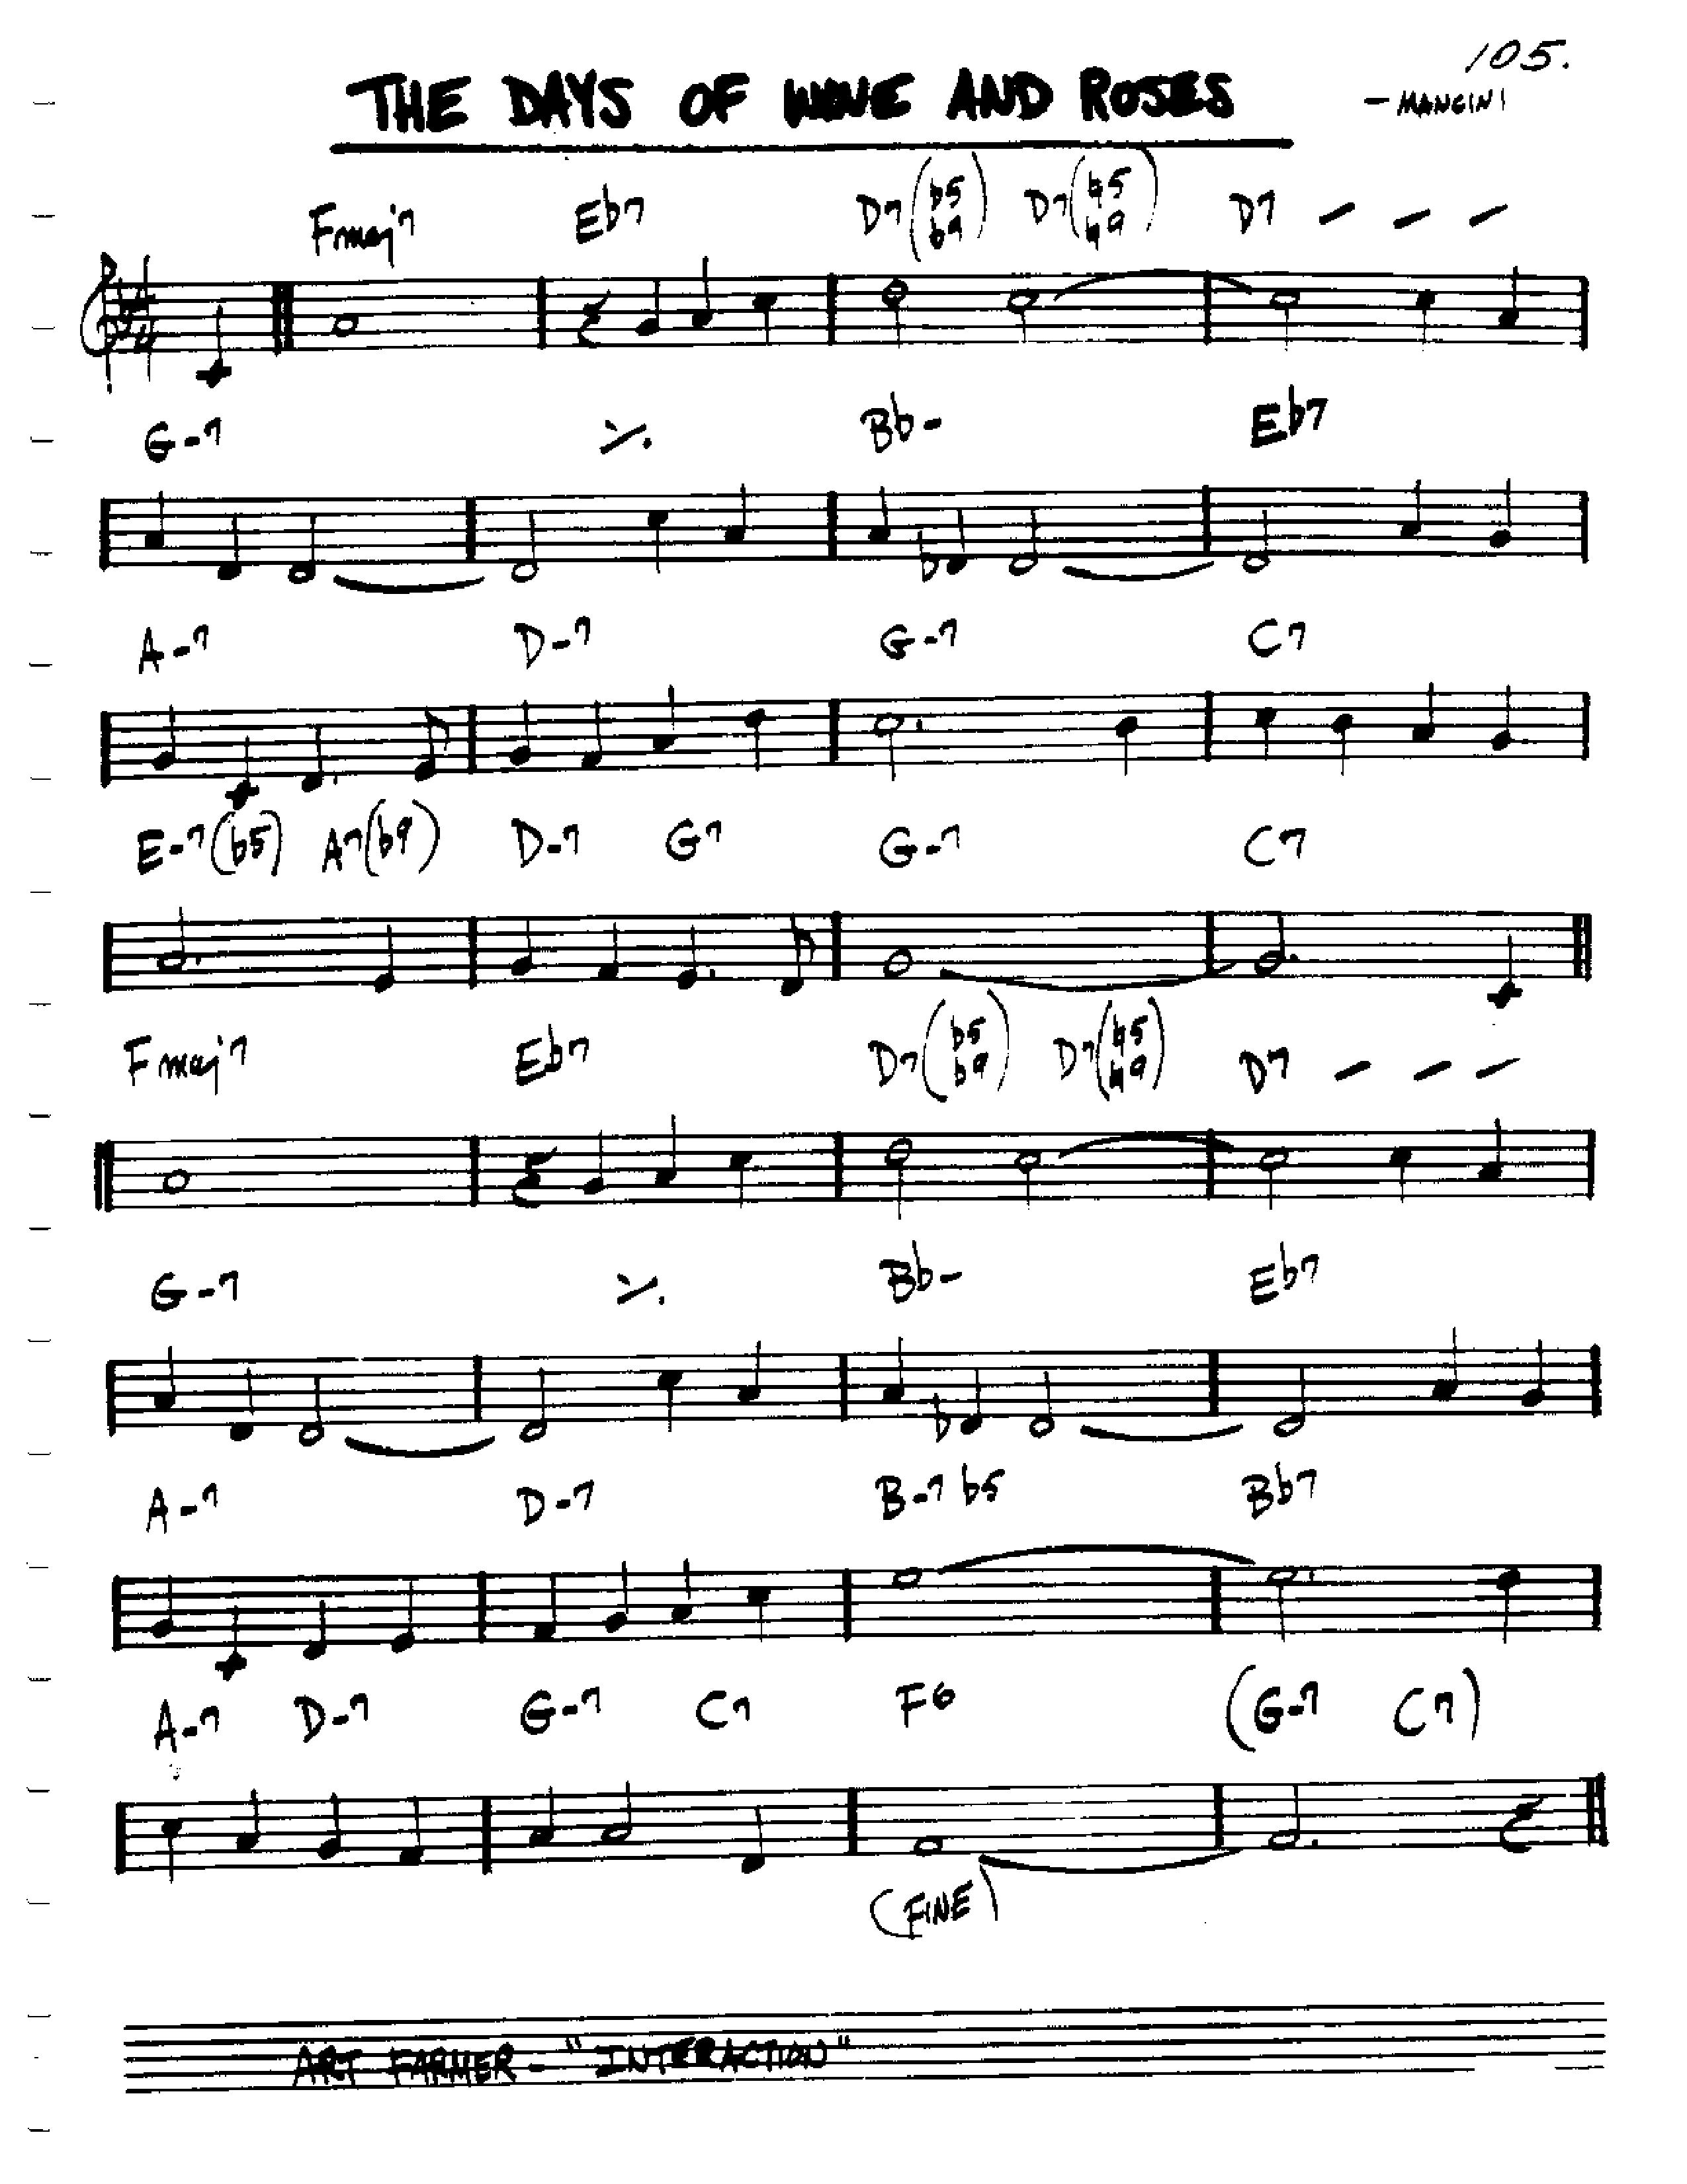 105.
THE DAYS OF WINE AND ROSES
- MANCINI
Fmaj7 Eb7 D7(b5 b9) D7(♮5 ♮9) D7 – – –
G-7 ٪ Bb- Eb7
A-7 D-7 G-7 C7
E-7(b5) A7(b9) D-7 G7 G-7 C7
Fmaj7 Eb7 D7(b5 b9) D7(♮5 ♮9) D7 – – –
G-7 ٪ Bb- Eb7
A-7 D-7 B-7 b5 Bb7
A-7 D-7 G-7 C7 F6 (G-7 C7)
(FINE)
ART FARMER - "INTERACTION"